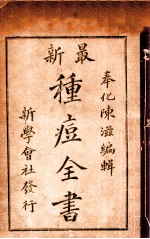 最新
奉化陳滋編輯
種痘全書
新學會社發行